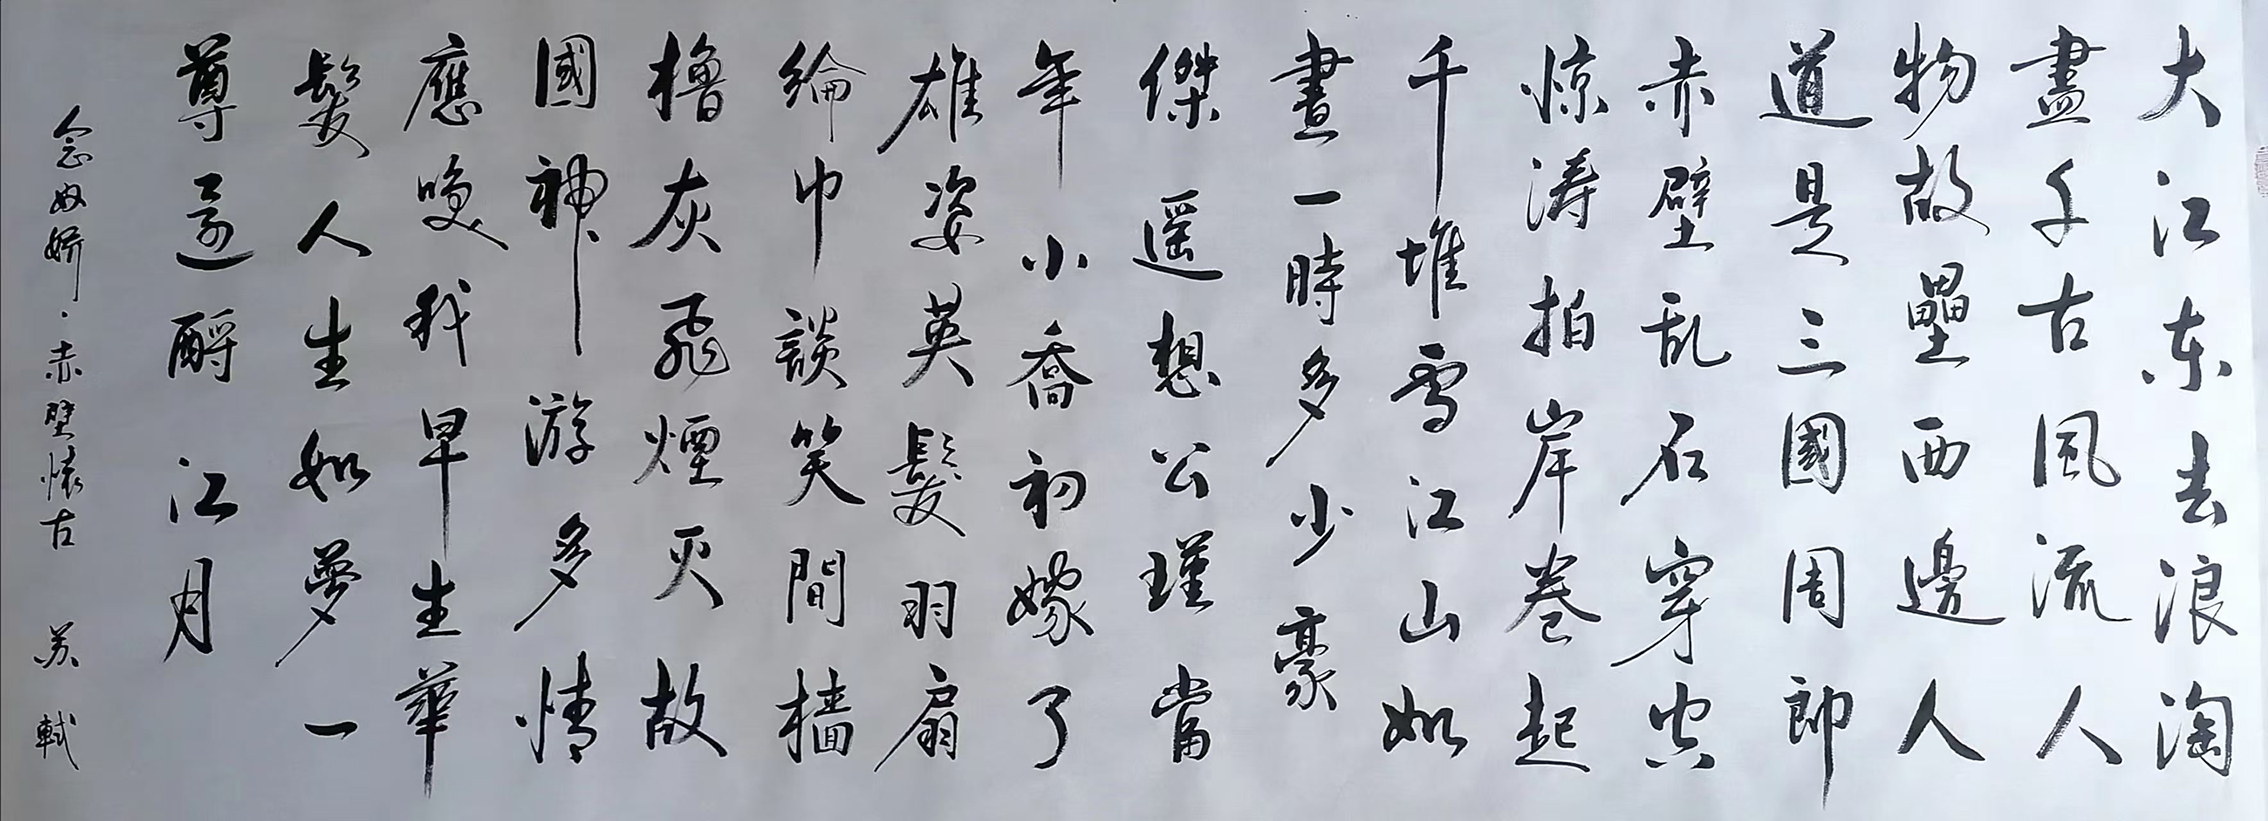 大江东去浪淘
盡千古風流人
物故壘西邊人
道是三國周郎
赤壁乱石穿空
惊涛拍岸卷起
千堆雪江山如
畫一時多少豪
傑遥想公瑾當
年小喬初嫁了
雄姿英髮羽扇
綸巾談笑間檣
橹灰飛煙灭故
國神游多情
應喚我早生華
髮人生如夢一
尊還酹江月
念奴娇·赤壁懷古 苏軾